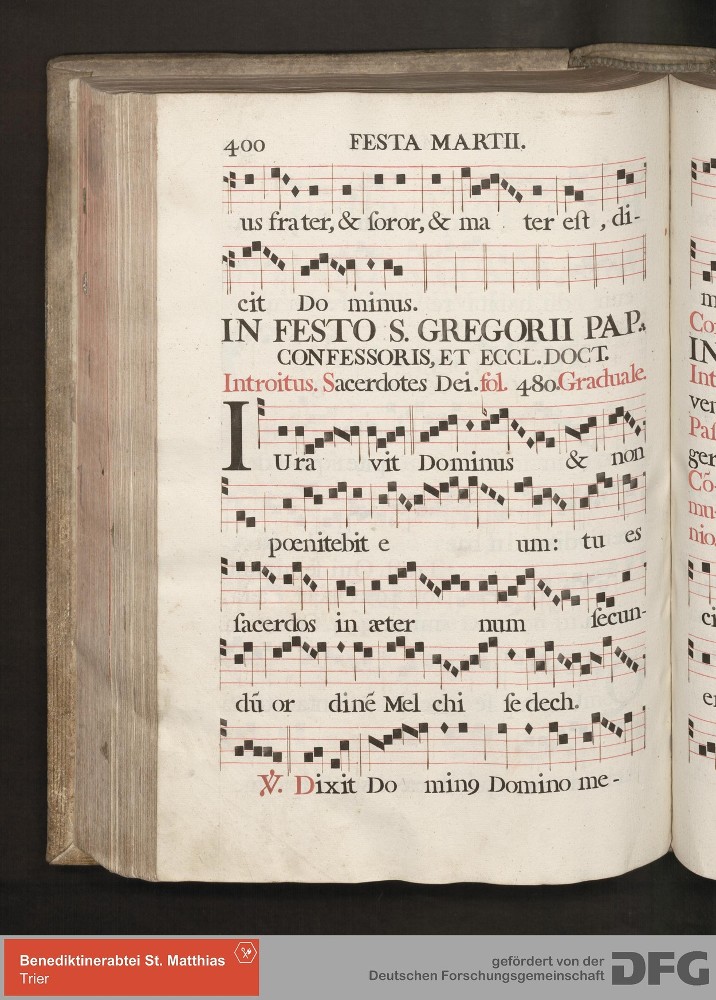 400 FESTA MARTII.
us frater, & ſoror, & ma ter eſt , di-
cit Do minus.
IN FESTO S. GREGORII PAP.
CONFESSORIS, ET ECCL. DOCT.
Introitus. Sacerdotes Dei. fol. 480. Graduale.
IUra vit Dominus & non
pœnitebit e um: tu es
ſacerdos in æter num ſecun-
dū or dinē Mel chi ſe dech.
℣. Dixit Do minꝰ Domino me-
m
Co
IN
Int
ven
Paſ
ger
Cō-
mu-
nio.
ci
er
Benediktinerabtei St. Matthias
Trier
gefördert von der
Deutschen Forschungsgemeinschaft
DFG